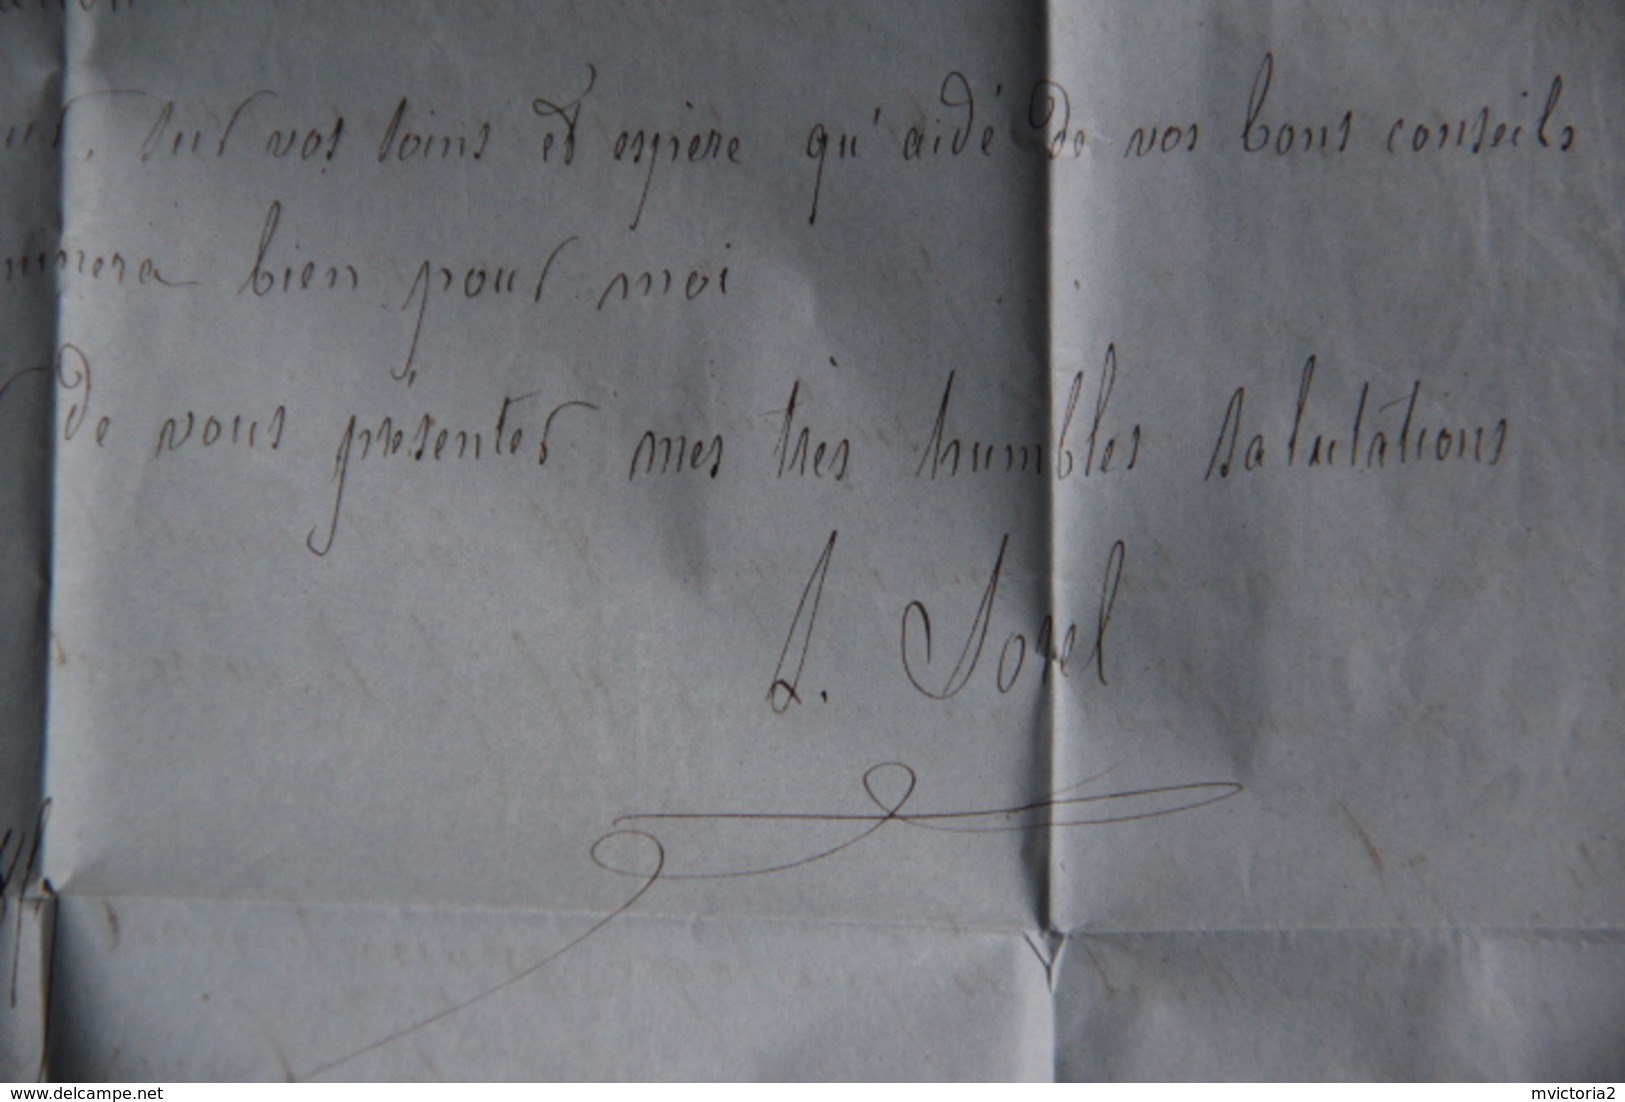 sur vos soins et espère qu'aidé de vos bons conseils
bien pour moi
de vous présenter mes très humbles salutations
A. Sorel
delcampe.net
mvictoria2